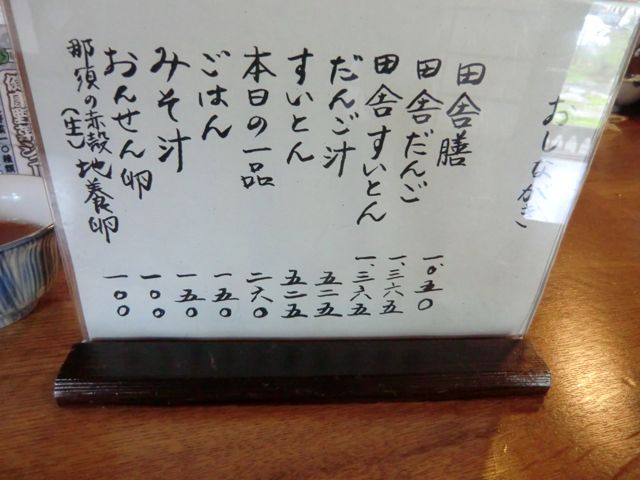 おしながき
田舎膳
一、〇五〇
田舎だんご
一、三六五
田舎すいとん
一、三六五
だんご汁
五二五
すいとん
五二五
本日の一品
二六〇
ごはん
一五〇
みそ汁
一五〇
おんせん卵
一〇〇
那須の赤殻地養卵
(生)
一〇〇